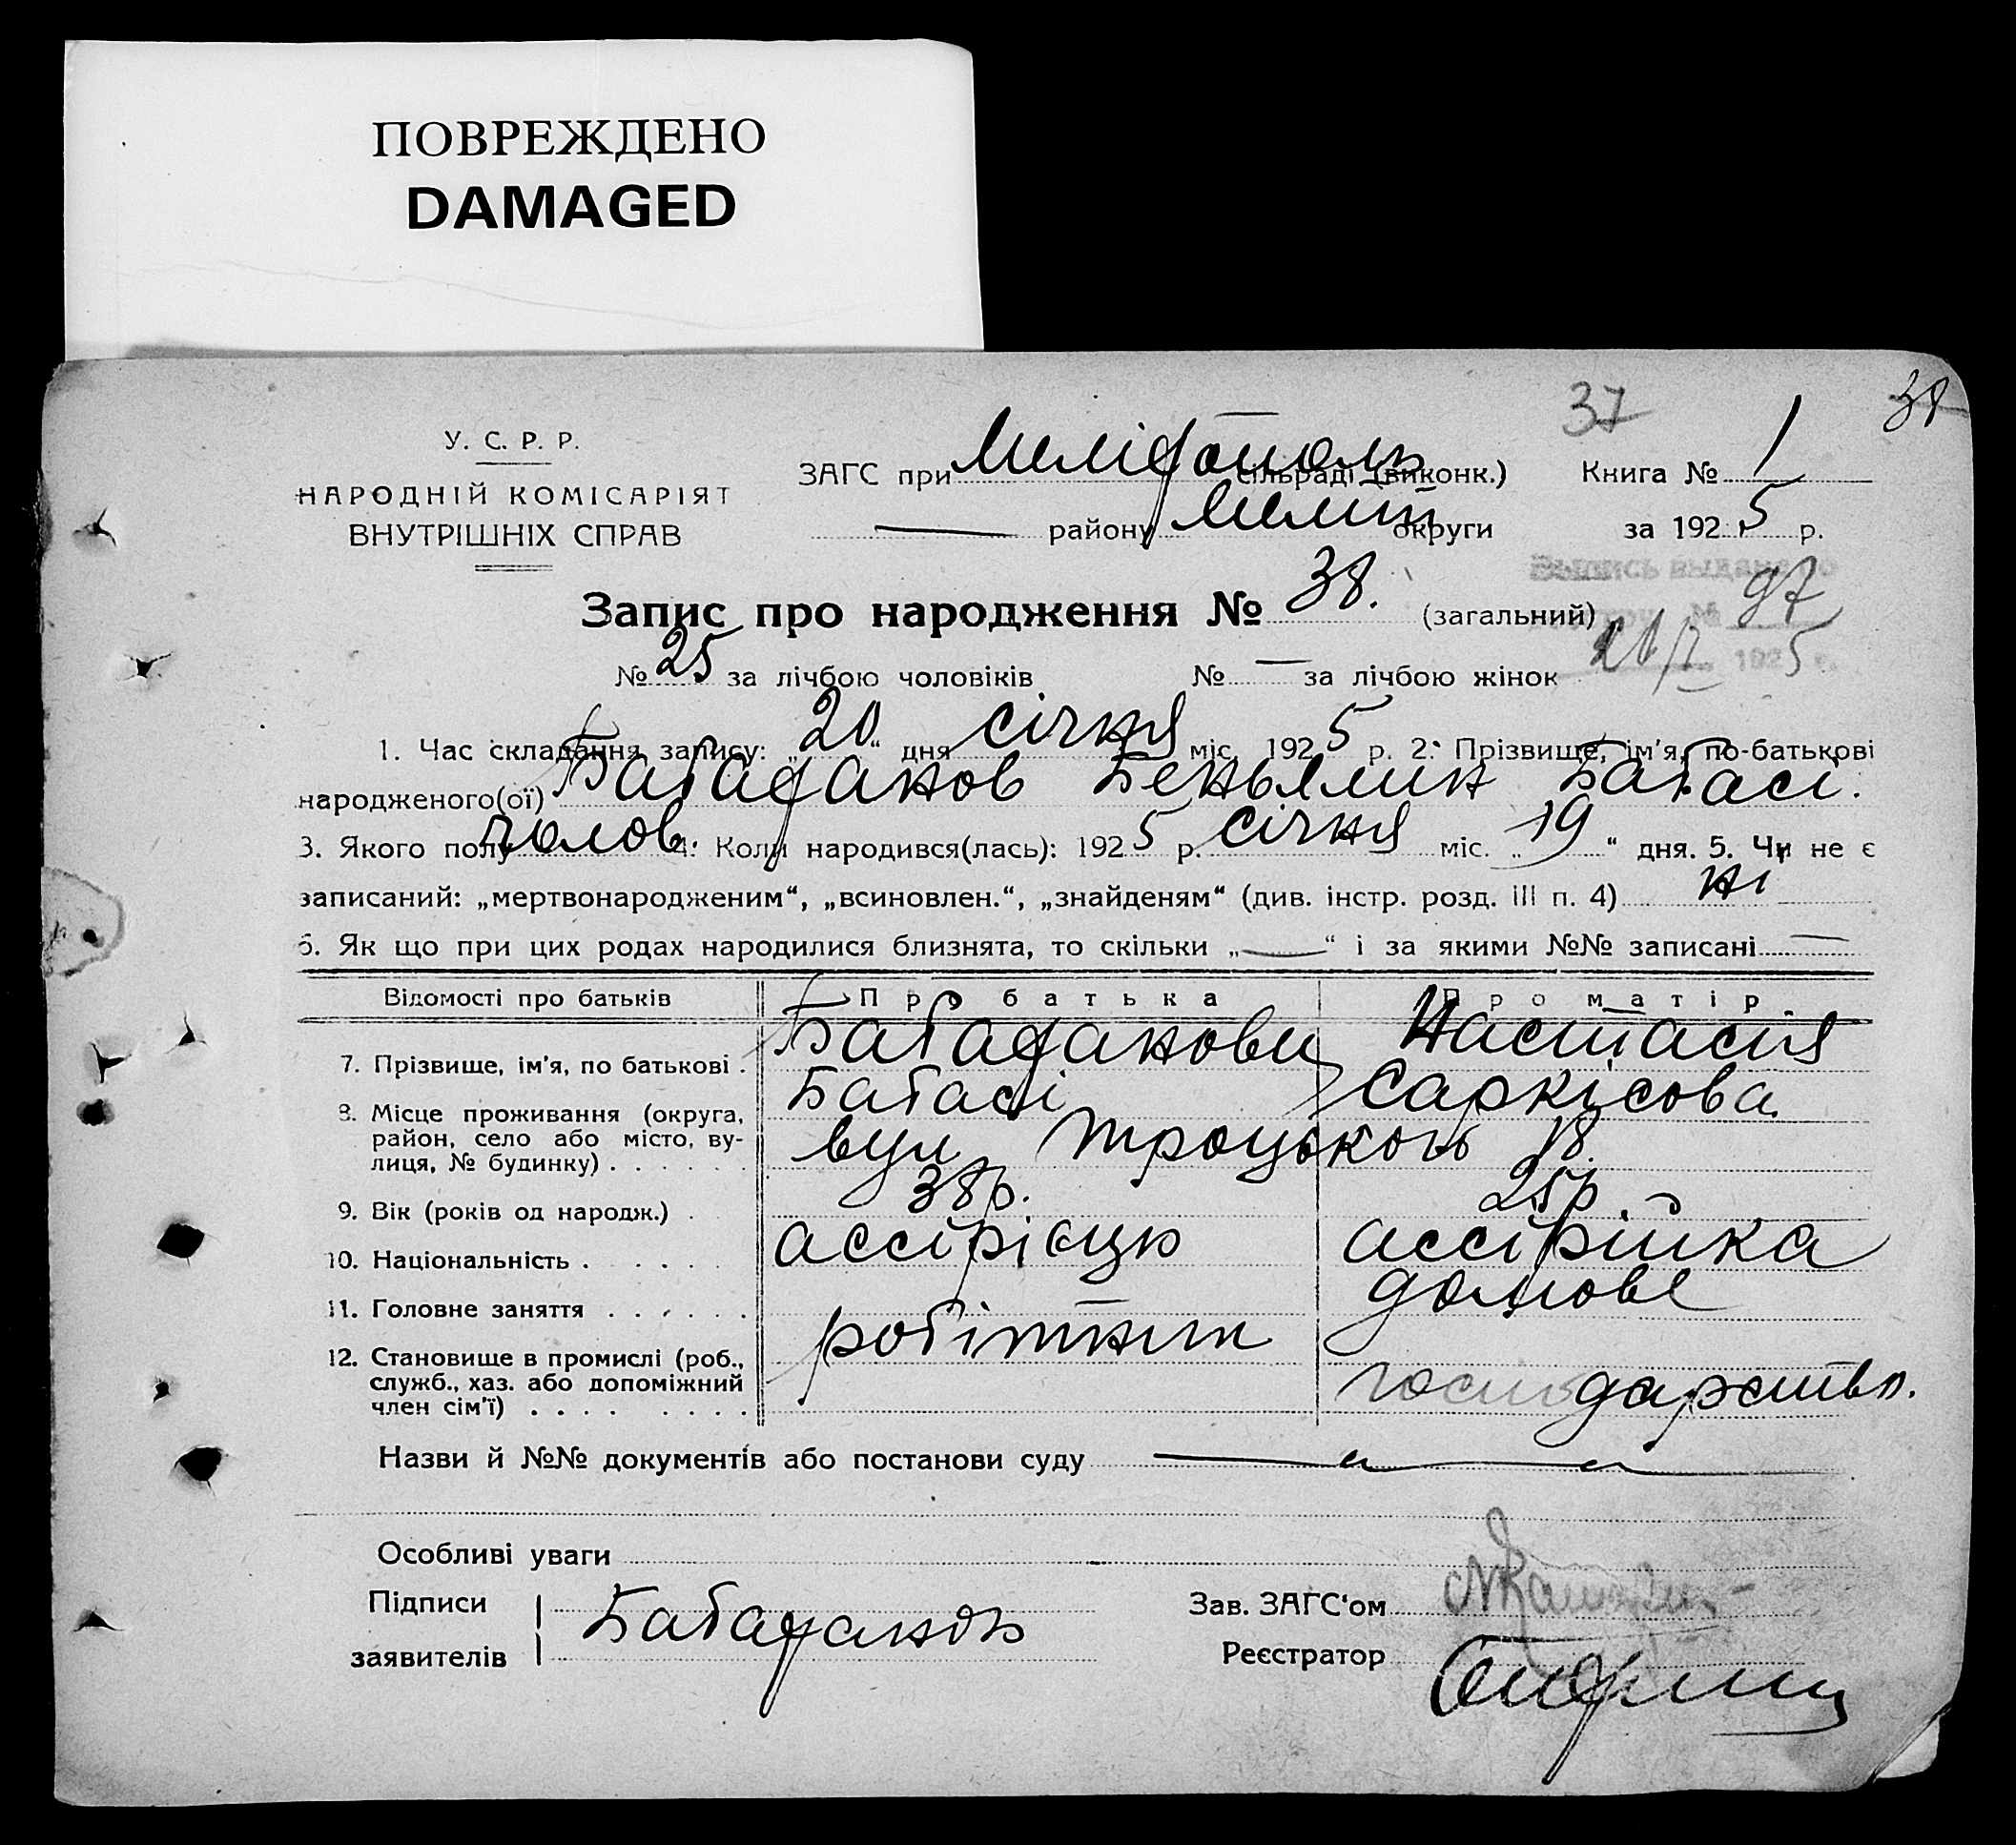 ПОВРЕЖДЕНО
DAMAGED
37 38
У. С. Р. Р.
НАРОДНІЙ КОМІСАРІЯТ
ВНУТРІШНІХ СПРАВ
ЗАГС при сільраді (виконк.) Книга № 1
— району Меліт округи за 1925 р.
Выпись выдана
97
Запис про народження № 38. (загальний)
№ 25 за лічбою чоловіків № — за лічбою жінок 1925 г.
1. Час складання запису: „20“ дня січня міс. 1925 р. 2. Прізвище, ім'я, по-батькові
народженого(ої) Бабаджанов Беньямин Бабасі.
3. Якого полу чолов. 4. Коли народився(лась): 1925 р. січня міс. „19“ дня. 5. Чи не є
записаний: „мертвонародженим“, „всиновлен.“, „знайденям“ (див. інстр. розд. III п. 4) ні
6. Як що при цих родах народилися близнята, то скільки „—“ і за якими №№ записані —
Відомості про батьків Про батька Про матір
7. Прізвище, ім'я, по батькові . Настасія
Бабасі Саркісова
8. Місце проживання (округа, район, село або місто, вулиця, № будинку) . . . . . . вул Троцького 18
9. Вік (років од народж.) . 38 р. 25 р.
10. Національність . . . . . ассірієць ассірійка
11. Головне заняття . . . . . . домове
12. Становище в промислі (роб., служб., хаз. або допоміжний член сім'ї) . . . . . . . . робітник господарство.
Назви й №№ документів або постанови суду —
Особливі уваги
Підписи
заявителів
Зав. ЗАГС'ом
Реєстратор